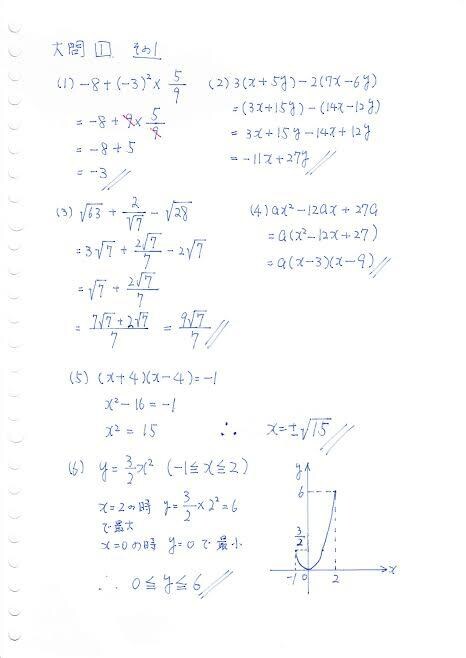 大問 1 その1
(1) -8+(-3)²×5/9
= -8+9×5/9
= -8+5
= -3
(2) 3(x+5y)-2(7x-6y)
=(3x+15y)-(14x-12y)
= 3x+15y-14x+12y
= -11x+27y
(3) √63 + 2/√7 - √28
= 3√7 + 2√7/7 - 2√7
= √7 + 2√7/7
= (7√7+2√7)/7 = 9√7/7
(4) ax²-12ax+27a
= a(x²-12x+27)
= a(x-3)(x-9)
(5) (x+4)(x-4)=-1
x²-16=-1
x² = 15 ∴ x=±√15
(6) y=3/2x² (-1≦x≦2)
x=2の時 y=3/2×2²=6
で最大
x=0の時 y=0で最小
∴ 0≦y≦6
y
6
3/2
-1 0 2 x